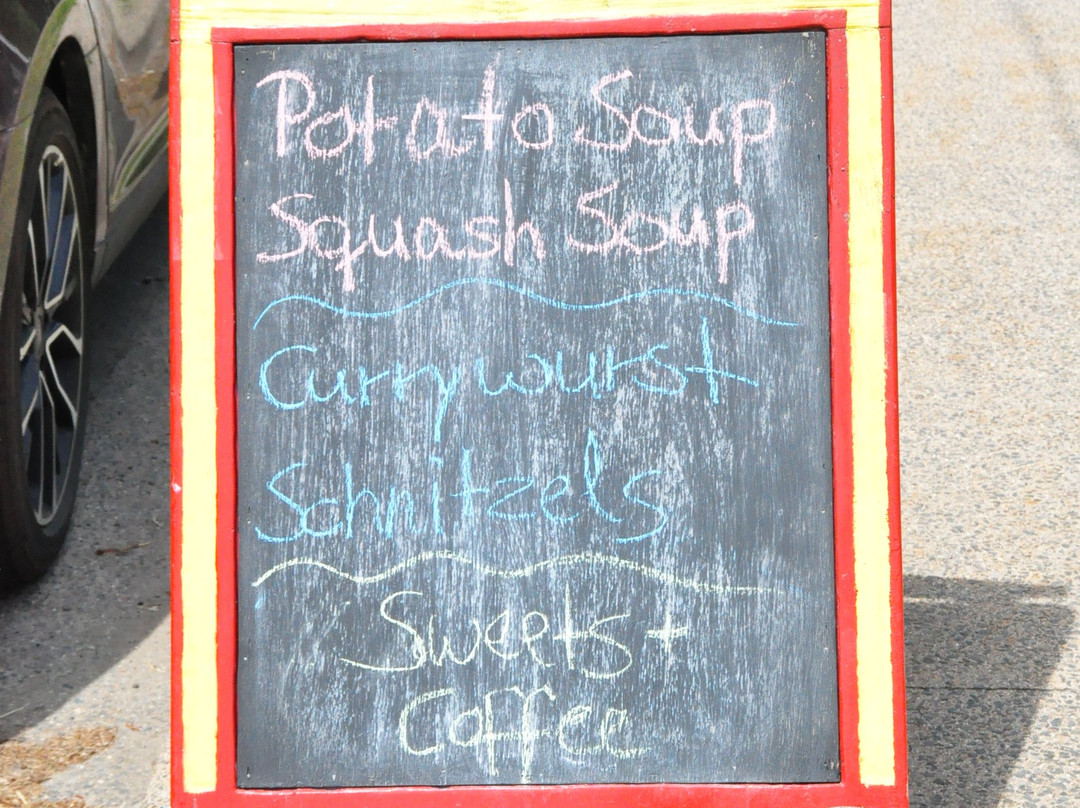 Potato Soup
Squash Soup
Currywurst
Schnitzels
Sweets +
Coffee